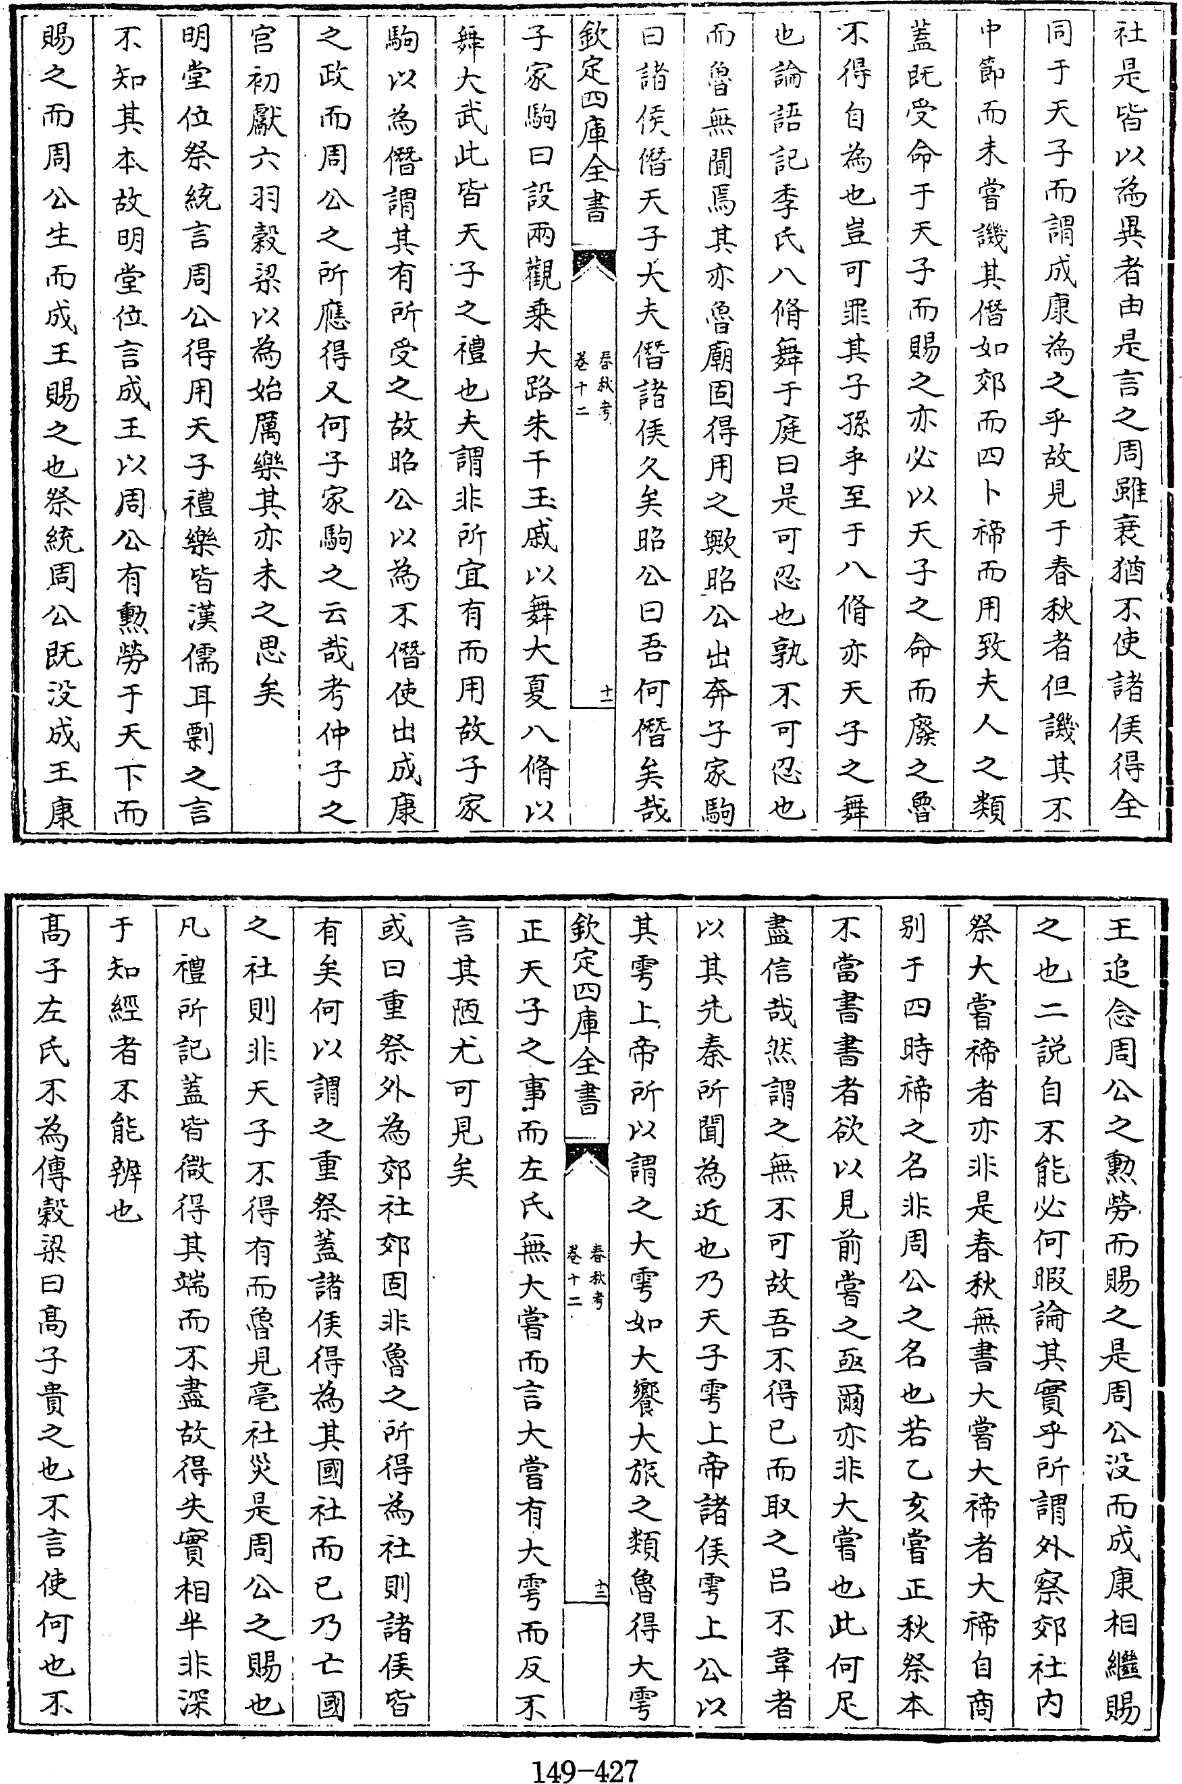 社是皆以為異者由是言之周雖衰猶不使諸侯得全
同于天子而謂成康為之乎故見于春秋者但譏其不
中節而未嘗譏其僭如郊而四卜禘而用致夫人之類
蓋既受命于天子而賜之亦必以天子之命而廢之魯
不得自為也豈可罪其子孫乎至于八佾亦天子之舞
也論語記季氏八佾舞于庭曰是可忍也孰不可忍也
而魯無聞焉其亦魯廟固得用之歟昭公出奔子家駒
曰諸侯僭天子大夫僭諸侯久矣昭公曰吾何僭矣哉
欽定四庫全書
春秋考
卷十二
十一
子家駒曰設兩觀乗大路朱干玉戚以舞大夏八佾以
舞大武此皆天子之禮也夫謂非所宜有而用故子家
駒以為僭謂其有所受之故昭公以為不僭使出成康
之政而周公之所應得又何子家駒之云哉考仲子之
宫初獻六羽穀梁以為始厲樂其亦未之思矣
明堂位祭統言周公得用天子禮樂皆漢儒耳剽之言
不知其本故明堂位言成王以周公有勲勞于天下而
賜之而周公生而成王賜之也祭統周公既没成王康
王追念周公之勲勞而賜之是周公没而成康相繼賜
之也二説自不能必何暇論其實乎所謂外祭郊社内
祭大嘗禘者亦非是春秋無書大嘗大禘者大禘自商
别于四時禘之名非周公之名也若乙亥嘗正秋祭本
不當書書者欲以見前嘗之亟爾亦非大嘗也此何足
盡信哉然謂之無不可故吾不得已而取之吕不韋者
以其先秦所聞為近也乃天子雩上帝諸侯雩上公以
其雩上帝所以謂之大雩如大饗大旅之類魯得大雩
欽定四庫全書
春秋考
卷十二
十二
正天子之事而左氏無大嘗而言大嘗有大雩而反不
言其陋尤可見矣
或曰重祭外為郊社郊固非魯之所得為社則諸侯皆
有矣何以謂之重祭蓋諸侯得為其國社而已乃亡國
之社則非天子不得有而魯見亳社災是周公之賜也
凡禮所記蓋皆微得其端而不盡故得失實相半非深
于知經者不能辨也
髙子左氏不為傳穀梁曰髙子貴之也不言使何也不
149-427